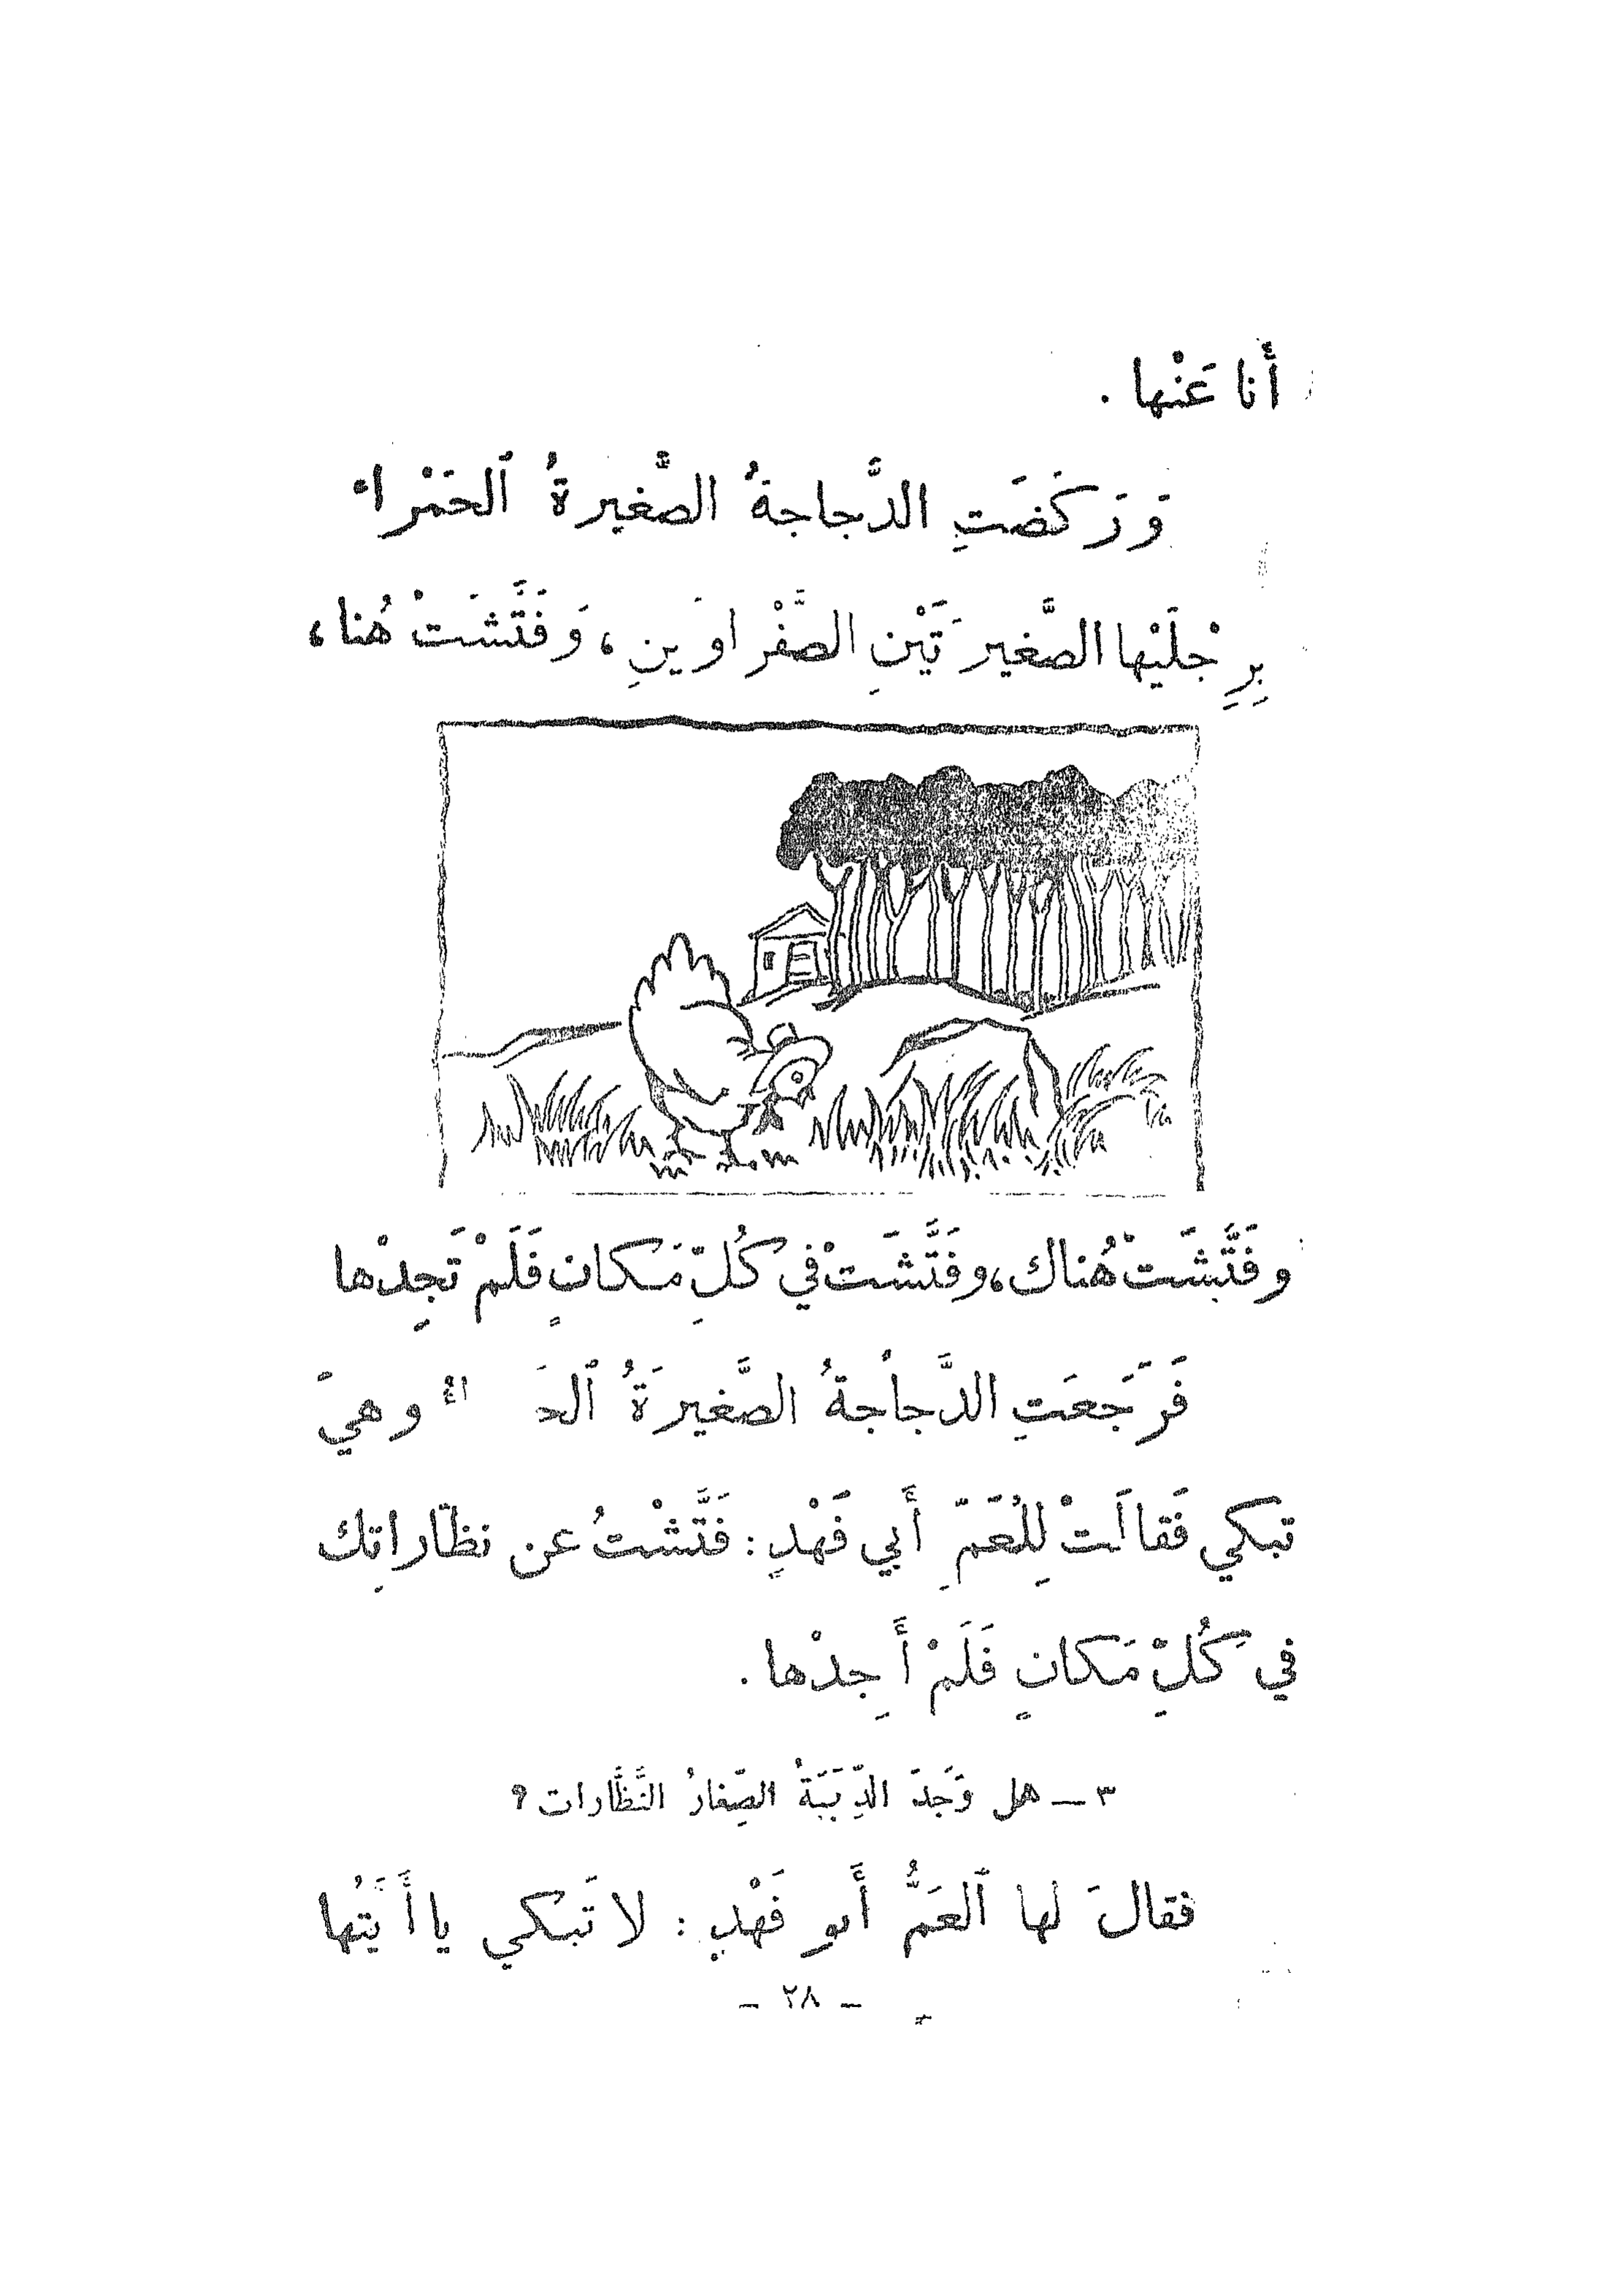 أَنا عَنْها .
وَرَكَضَتِ الدَّجاجةُ الصَّغيرةُ ٱلحَمْراءُ
بِرِجْلَيْها الصَّغيرَتَيْنِ الصَّفْراوَينِ ، وَفَتَّشَتْ هُنا ،
وفَتَّشَتْ هُناك ، وفَتَّشَتْ في كُلِّ مَكانٍ فَلَمْ تَجِدْها
فَرَجَعَتِ الدَّجاجةُ الصَّغيرَةُ وهيَ
تبكي فَقالَتْ لِلْعَمِّ أَبي فَهْدٍ : فَتَّشْتُ عن نظّاراتِك
في كُلِّ مَكانٍ فَلَمْ أَجِدْها .
٣ — هل وَجَدَ الدِّبَبَةُ الصِّغارُ النَّظَّارات ؟
فقالَ لها ٱلعَمُّ أَبو فَهْدٍ : لا تَبكي يا أَيَّتُها
- ٢٨ -